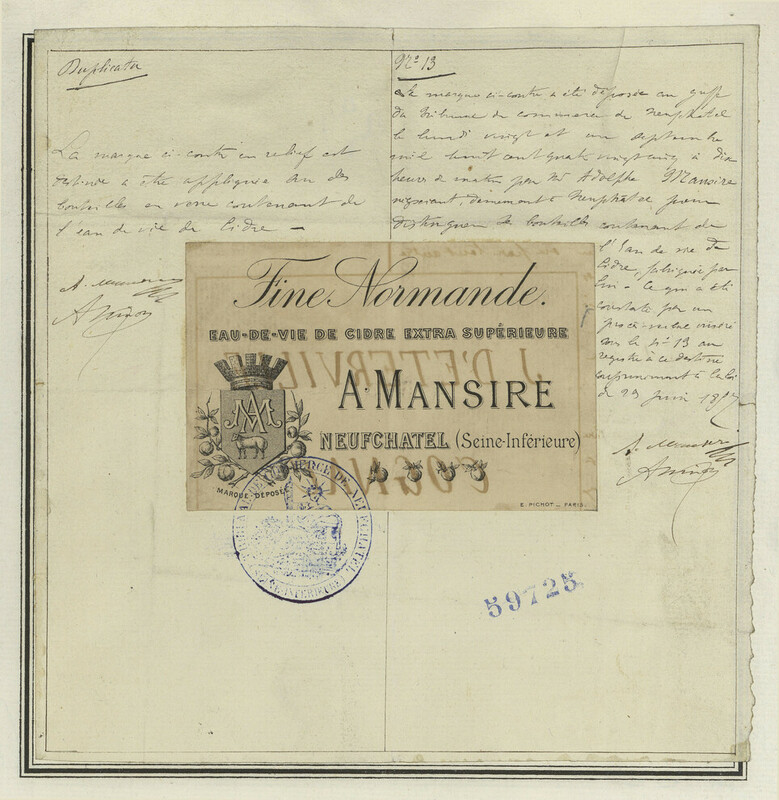 Duplicata
La marque ci-contre en relief est
destinée à être appliquée sur des
bouteilles en verre contenant de
l'eau de vie de Cidre —
Nº 13
La marque ci-contre a été déposée au greffe
du tribunal de commerce de Neufchatel
le lundi vingt et un septembre
mil huit cent quatre vingt cinq à dix
heures du matin par Mr Adolphe Mansire
négociant, demeurant à Neufchatel pour
distinguer les bouteilles contenant de
l'Eau de vie de
Cidre, fabriquée par
lui - Ce qui a été
constaté par un
procès-verbal inscrit
sous le nº 13 au
registre à ce destiné
conformément à la loi
du 23 juin 1857
A. Mansire
A. Mansire
Fine Normande.
EAU-DE-VIE DE CIDRE EXTRA SUPÉRIEURE
A. MANSIRE
NEUFCHATEL (Seine-Inférieure)
AM
MARQUE DÉPOSÉE
E. PICHOT _ PARIS.
J. D'ETERVILLE
COGNAC
TRIBUNAL DE COMMERCE DE NEUFCHATEL
(SEINE-INFÉRIEURE)
59725